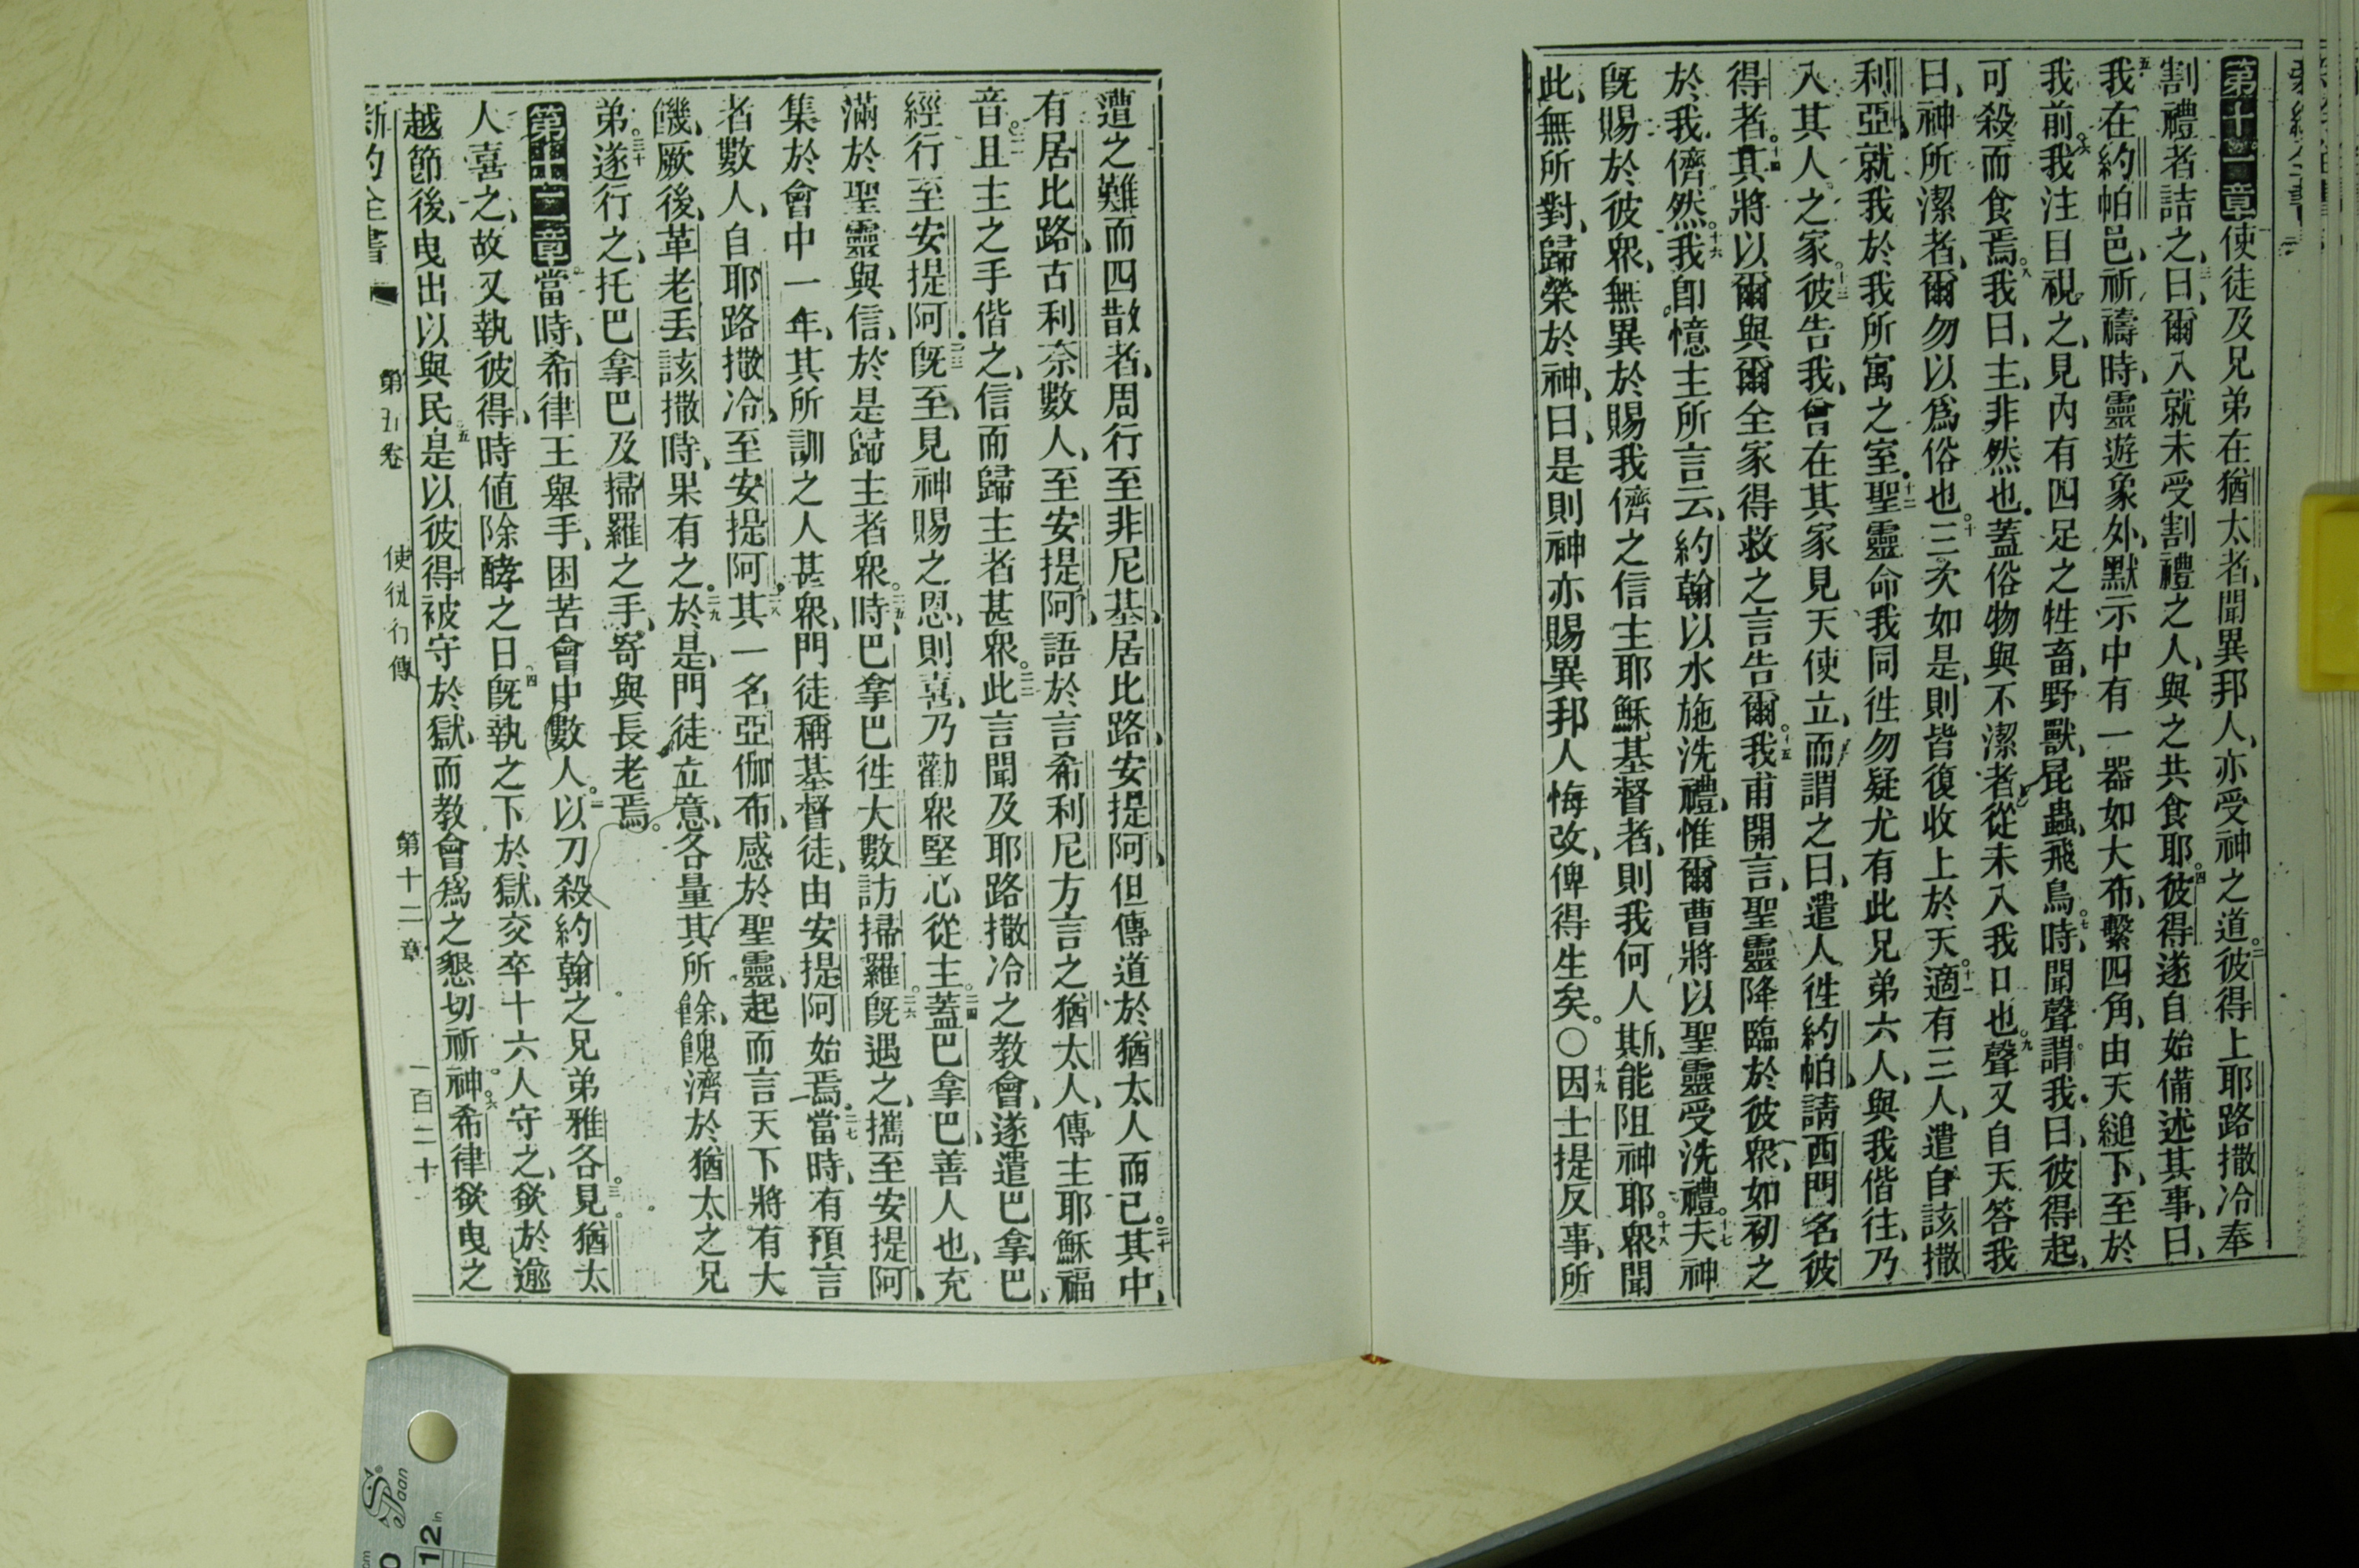 第十一章使徒及兄弟在猶太者、聞異邦人、亦受神之道。二彼得上耶路撒冷奉
割禮者詰之、三曰、爾入就未受割禮之人、與之共食耶。四彼得遂自始備述其事、曰、
五我在約帕邑、祈禱時、靈遊象外、默示中有一器如大布、繫四角、由天縋下、至於
我前。六我注目視之、見內有四足之牲畜、野獸、昆蟲、飛鳥。七時、聞聲謂我、曰、彼得起、
可殺而食焉。八我曰、主、非然也、蓋俗物與不潔者、從未入我口也。九聲又自天答我
曰、神所潔者、爾勿以爲俗也。十三次如是、則皆復收上於天。十一適有三人、遣自該撒
利亞、就我於我所寓之室。十二聖靈命我同徃勿疑尤有此兄弟六人、與我偕往、乃
入其人之家。十三彼告我、曾在其家見天使立、而謂之曰、遣人徃約帕、請西門名彼
得者。十四其將以爾與爾全家得救之言告爾。十五我甫開言、聖靈降臨於彼衆、如初之
於我儕然。十六我卽憶主所言云、約翰以水施洗禮、惟爾曹將以聖靈受洗禮。十七夫神
旣賜於彼衆、無異於賜我儕之信主耶穌基督者、則我何人斯、能阻神耶。十八衆聞
此、無所對、歸榮於神、曰、是則神亦賜異邦人悔改、俾得生矣。○十九因士提反事、所
遭之難而四散者、周行至非尼基、居比路、安提阿、但傳道於猶太人而已。二十其中、
有居比路、古利奈數人、至安提阿、語於言希利尼方言之猶太人、傳主耶穌福
音。二一且主之手偕之、信而歸主者甚衆。二二此言聞及耶路撒冷之教會、遂遣巴拿巴、
經行至安提阿。二三旣至、見神賜之恩、則喜、乃勸衆堅心從主。二四蓋巴拿巴、善人也、充
滿於聖靈與信、於是歸主者衆。二五時、巴拿巴徃大數訪掃羅。二六旣遇之、攜至安提阿、
集於會中一年、其所訓之人甚衆、門徒稱基督徒、由安提阿始焉。二七當時、有預言
者數人、自耶路撒冷、至安提阿。二八其一名亞伽布、感於聖靈、起而言天下將有大
饑、厥後、革老丟該撒時、果有之。二九於是、門徒立意、各量其所餘、餽濟於猶太之兄
弟。三十遂行之、托巴拿巴及掃羅之手、寄與長老焉。
第十二章當時、希律王舉手、困苦會中數人。二以刀殺約翰之兄弟雅各。三見猶太
人喜之、故又執彼得、時値除酵之日。四旣執之下於獄、交卒十六人守之、欲於逾
越節後、曳出以與民。五是以彼得被守於獄、而教會爲之懇切祈神。六希律欲曳之
新約全書 第五卷 使徒行傳 第十二章 一百二十
12
in